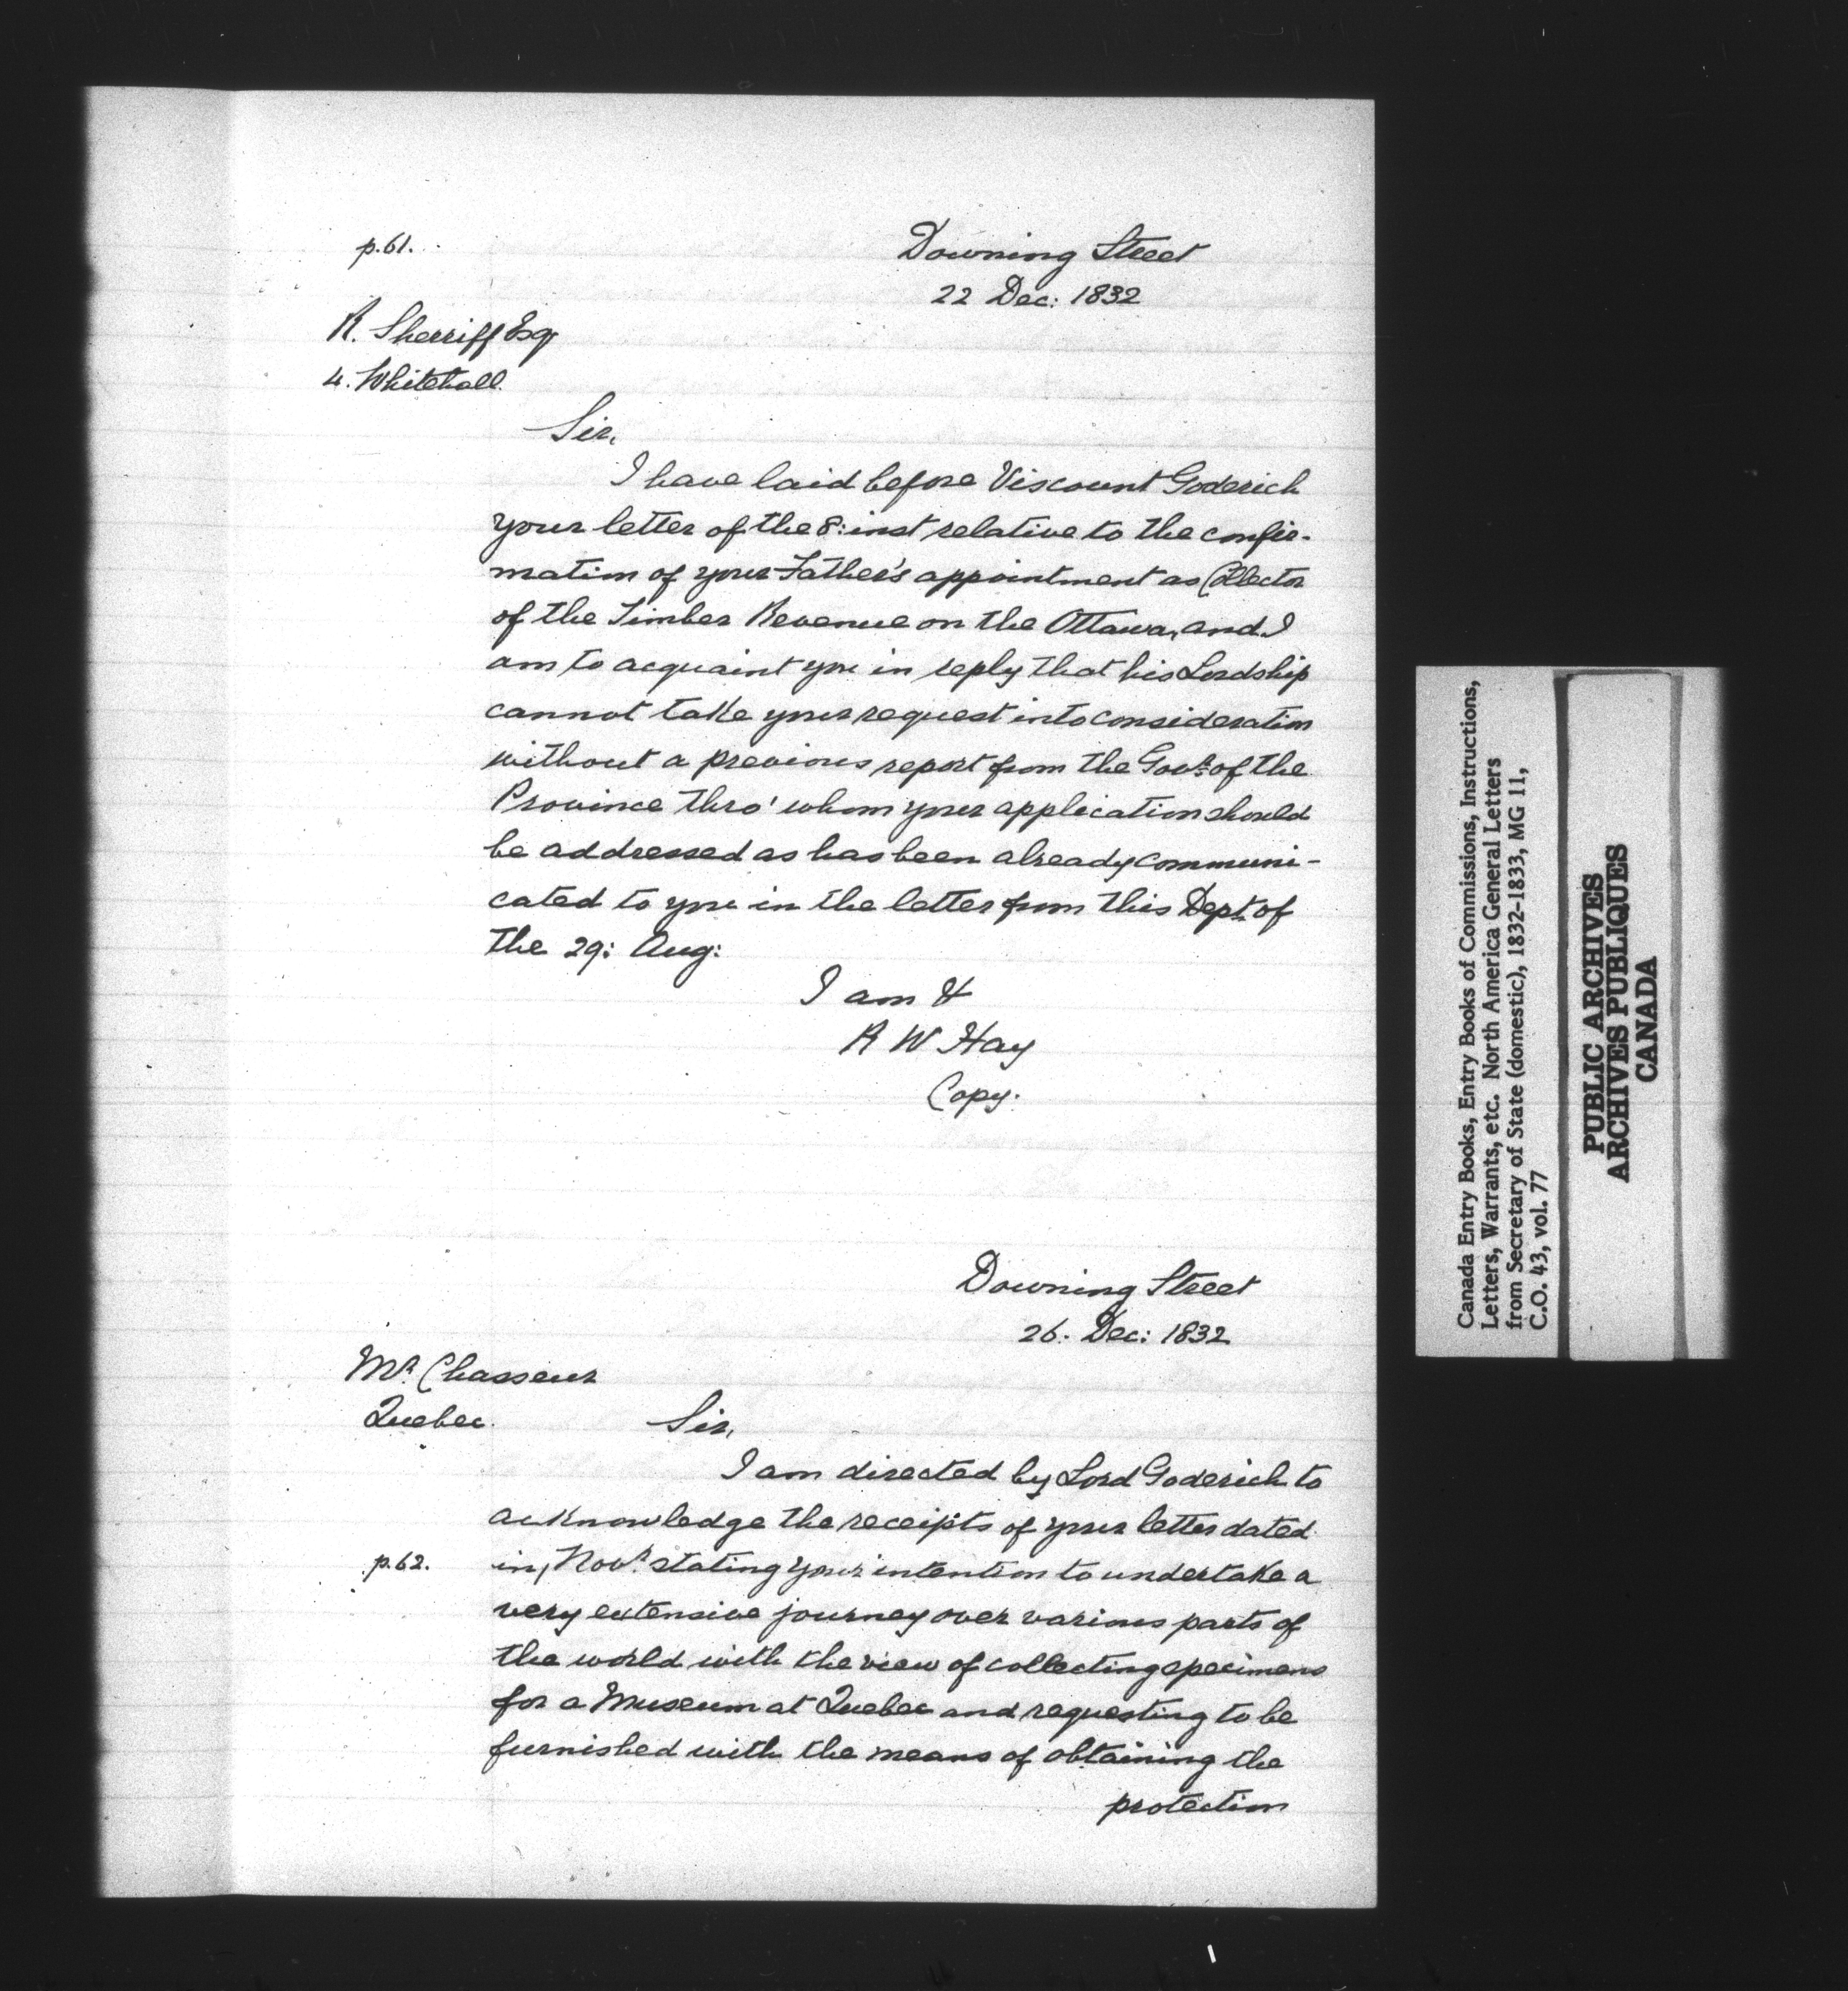 p.61.
Downing Street
22 Dec: 1832
R. Sherriff Esq
4. Whitehall.
Sir,
I have laid before Viscount Goderich
your letter of the 8: inst relative to the confir-
mation of your Father's appointment as Collector
of the Timber Revenue on the Ottawa, and I
am to acquaint you in reply that his Lordship
cannot take your request into consideration
without a previous report from the Govr. of the
Province thro' whom your application should
be addressed as has been already communi-
cated to you in the letter from this Dept. of
the 29: Aug:
I am &
R W Hay
Copy.
Downing Street
26. Dec: 1832
Mr. Chasseur
Quebec.
Sir,
I am directed by Lord Goderich to
acknowledge the receipts of your letter dated
p.62.
in, Novr. stating your intention to undertake a
very extensive journey over various parts of
the world with the view of collecting specimens
for a Museum at Quebec and requesting to be
furnished with the means of obtaining the
protection
Canada Entry Books, Entry Books of Commissions, Instructions,
Letters, Warrants, etc. North America General Letters
from Secretary of State (domestic), 1832-1833, MG 11,
C.O. 43, vol. 77
PUBLIC ARCHIVES
ARCHIVES PUBLIQUES
CANADA